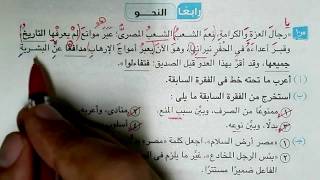 رابعًا النحو
يا
س١٠ «رجال العزة والكرامة، نِعمَ الشعبُ الشعبُ المصرىُّ؛ عبَر موانعَ لم يعرفها التاريخُ
وقهر أعداءَهُ في الحفر نيرانًا، وهو الآن يعبر أمواجَ الإرهابِ مدافعًا عن البشرية
جميعها، وقد أقر بهذا العدو قبل الصديق؛ فتفاءلوا».
١) أعرب ما تحته خط في الفقرة السابقة.
٢) استخرج من الفقرة السابقة ما يلى:
ممنوعًا من الصرف، وبيّن سبب المنع.
منادى، وأعربه
بدلًا، وبيّن نوعه.
أسلوب
٣) «مصر أرض السلام». اجعل كلمة «مصر
«بئس الرجل المخادع». غيّر ما يلزم في
الفاعل ضميرًا مستترًا.